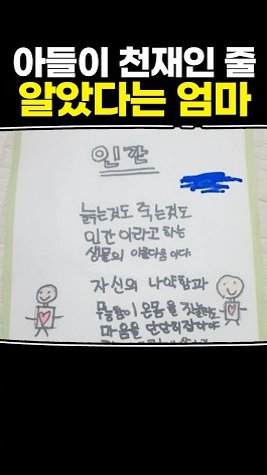 아들이 천재인 줄
알았다는 엄마
인간
늙는것도 죽는것도
인간 이라고 하는
생물의 아름다움 이다
자신의 나약함과
무능함이 온몸을 짓눌러도
마음을 단단히잡아야